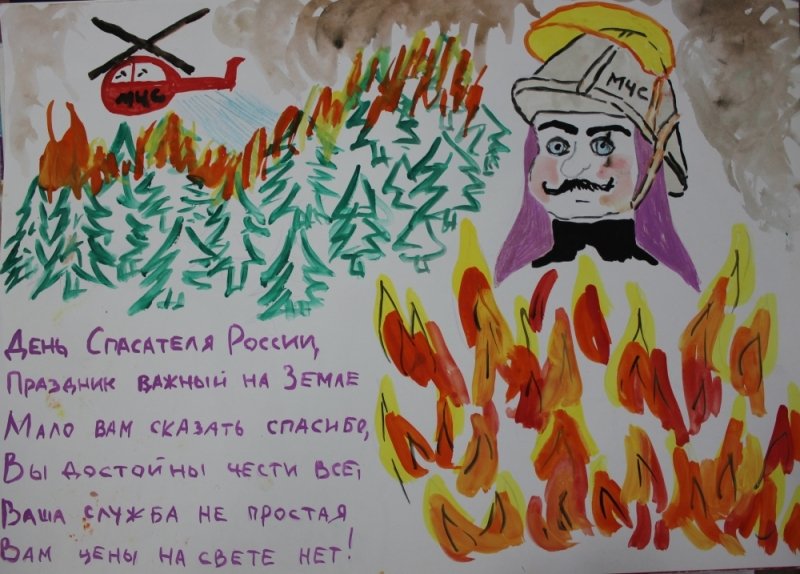 МЧС
МЧС
День Спасателя России,
Праздник важный на Земле
Мало вам сказать спасибо,
Вы достойны чести все,
Ваша служба не простая
Вам цены на свете нет!